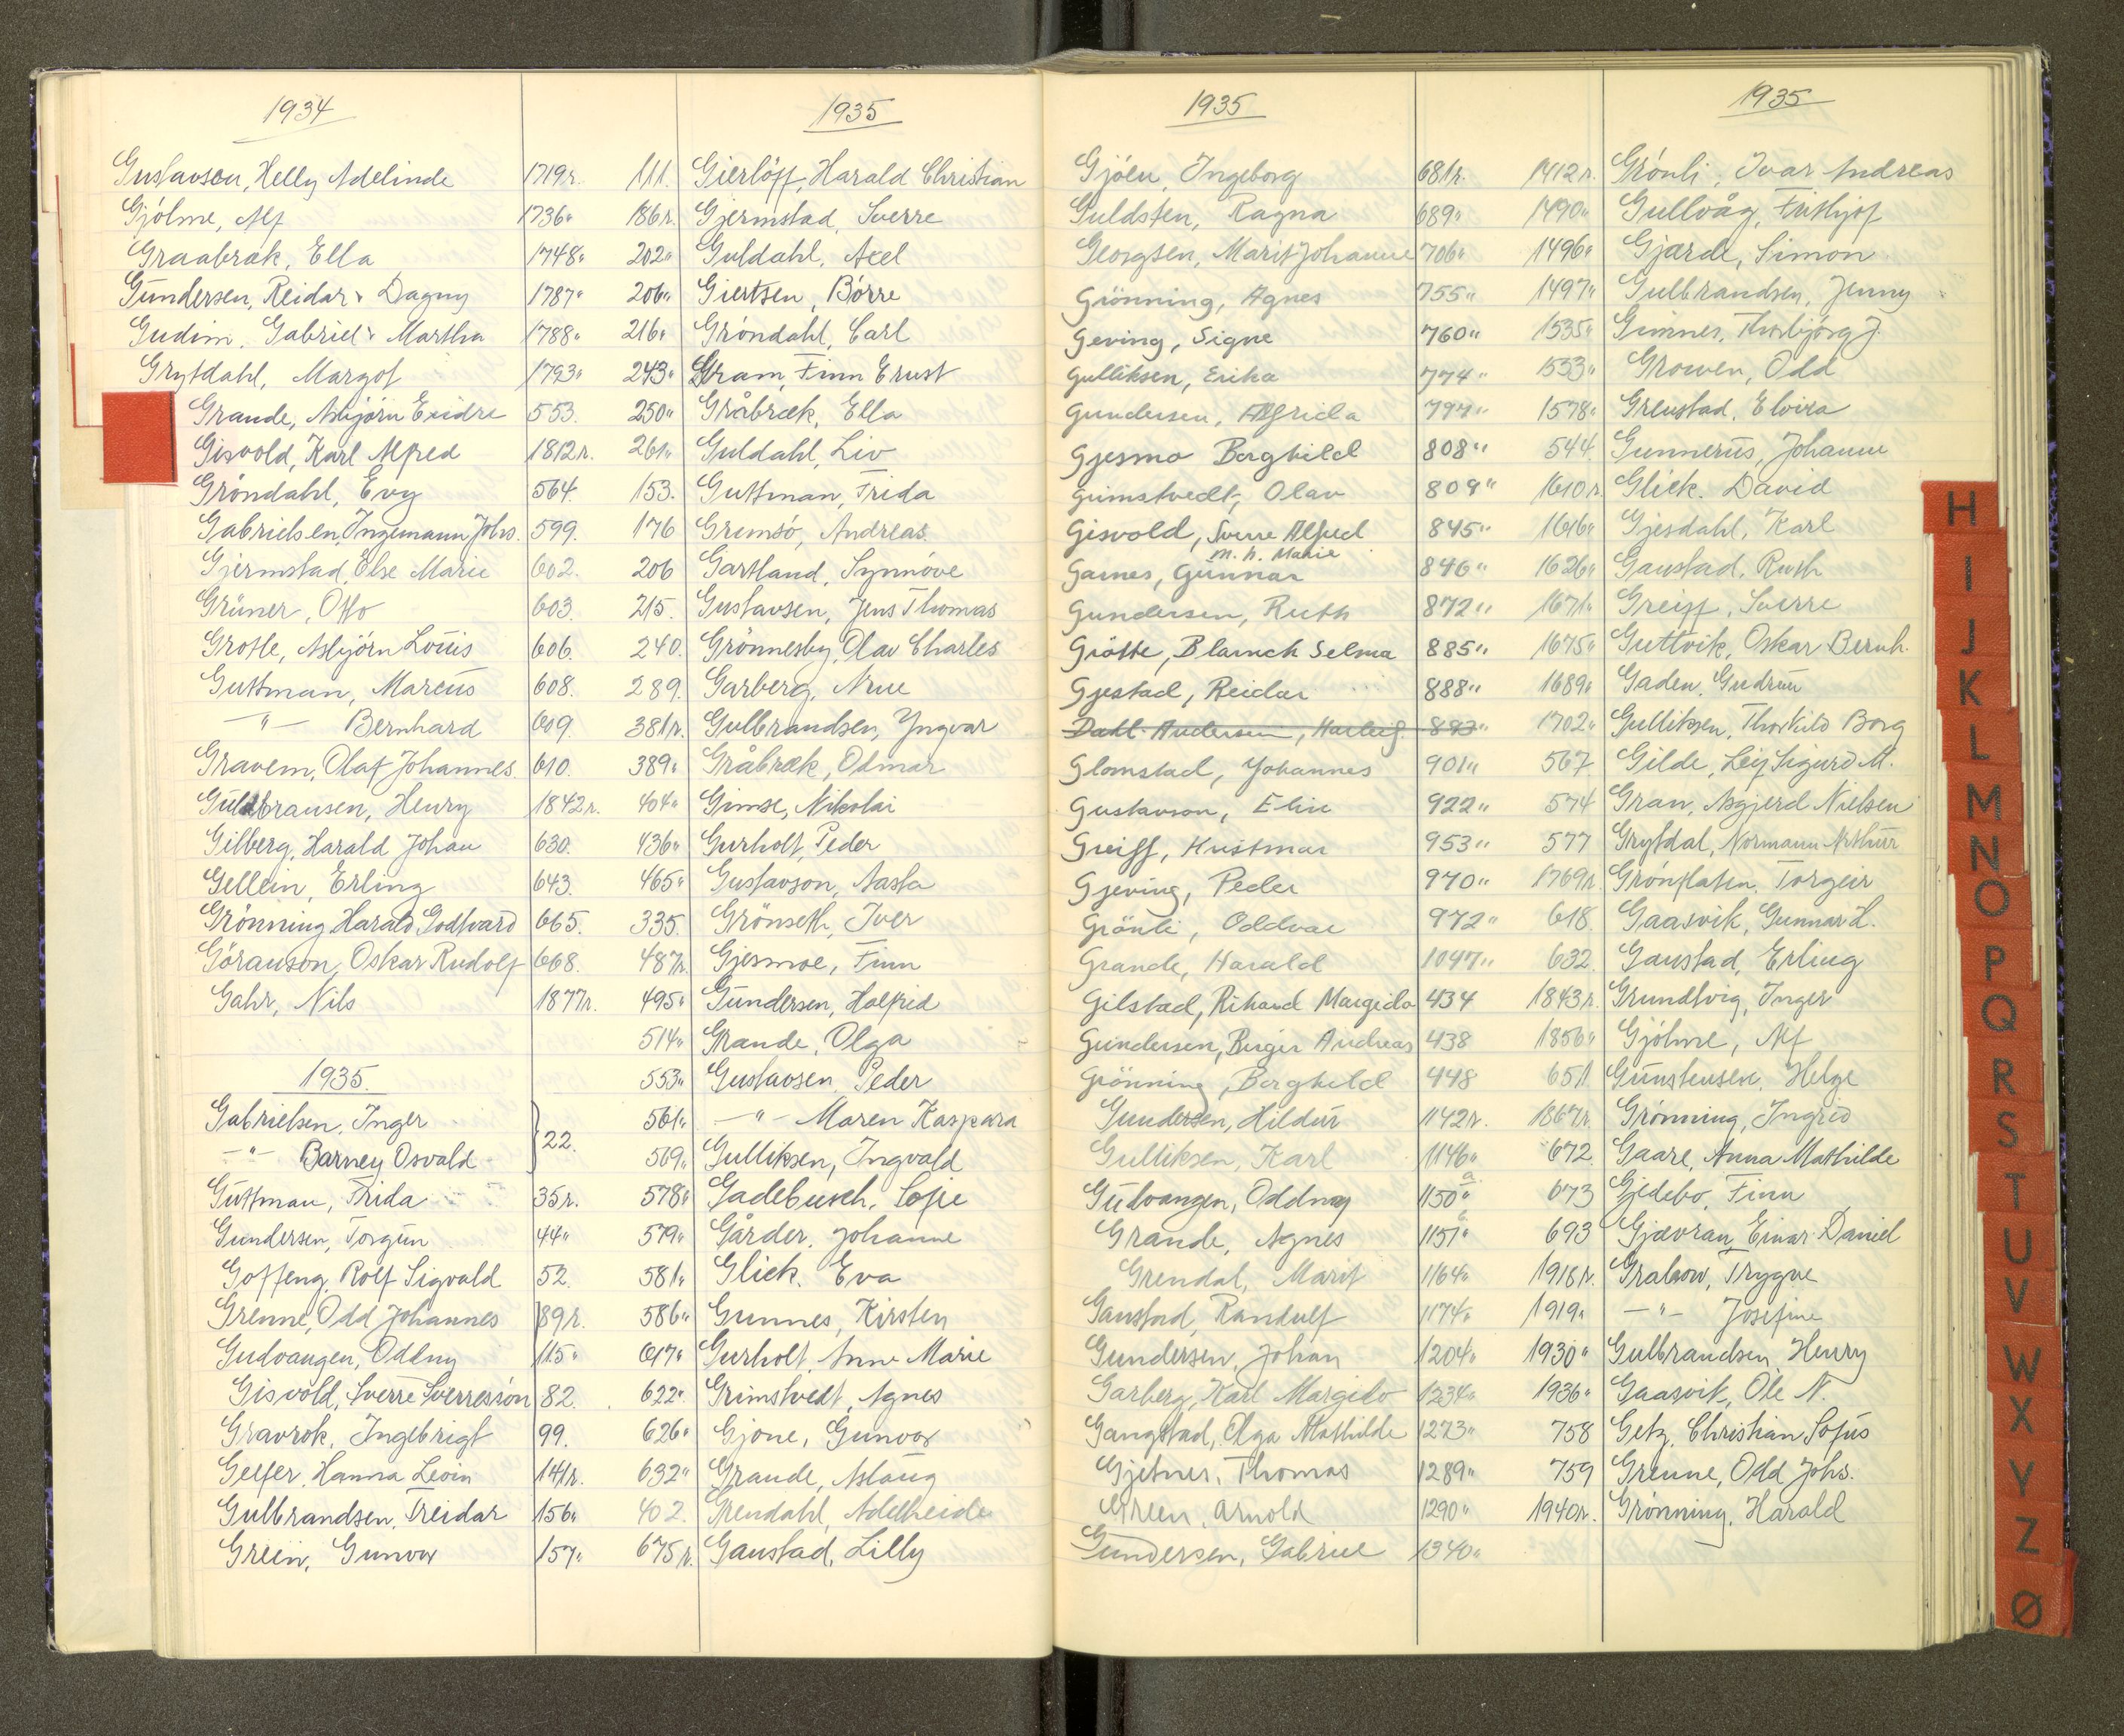 1934
Gustavsen, Helly Adelinde 1719r.
Gjølme, Alf 1736"
Graabræk, Ella 1748"
Gundersen, Reidar & Dagny 1787"
Gudim, Gabriel & Martha 1788"
Grytdahl, Margot 1793"
Grande, Asbjørn Eindre 553.
Gisvold, Karl Alfred 1812r.
Grøndahl, Evy 564.
Gabrielsen, Ingemann Johs. 599.
Gjermstad, Else Marie 602.
Grüner, Otto 603.
Grotle, Asbjørn Louis 606.
Guttman, Marcus 608.
—"— Bernhard 609.
Gravem, Olaf Johannes 610.
Guldbransen, Henry 1842r.
Gilberg, Harald Johan 630.
Gellein, Erling 643.
Grønning, Harald Godtvard 665.
Göranson, Oskar Rudolf 668.
Gahr, Nils 1877r.
1935.
Gabrielsen, Inger
—"— Barney Osvald } 22.
Guttman, Frida 35r.
Gundersen, Torgun 44"
Goffeng, Rolf Sigvald 52.
Grenne, Odd Johannes 89r.
Gudvangen, Oddny 115"
Gisvold, Sverre Sverresson 82.
Gravrok, Ingebrigt 99.
Gelfer, Hanna Levin 141r.
Gulbrandsen, Treidar 156"
Grein, Gunvor 157"
1935
111. Gierløff, Harald Christian
186r. Gjermstad, Sverre
202" Guldahl, Axel
206" Giertsen, Børre
216" Grøndahl, Carl
243" Gram, Finn Ernst
250" Gråbræk, Ella
261" Guldahl, Liv
153. Guttman, Frida
176 Gremsø, Andreas.
206 Gartland, Synnøve
215. Gustavsen, Jens Thomas
240. Grønnesby, Olav Charles
289. Garberg, Arne
381r. Gulbrandsen, Yngvar
389" Gråbræk, Odmar
404" Gimse, Nikolai
436" Gurholt, Peder
465" Gustavson, Aasta
335. Grönseth, Iver
487r. Gjesmoe, Finn
495" Gundersen, Halfrid
514" Grande, Olga
553" Gustavsen, Peder
561" —"— Maren Kaspara
569" Gulliksen, Ingvald
578" Gadebusch, Sofie
579" Gårder, Johanne
581" Glick, Eva
586" Gunnes, Kirsten
617" Gurholt, Anne Marie
622" Grimstvedt, Agnes
626" Gjone, Gunvor
632" Grande, Aslaug
402. Grendahl, Adelheide
675r. Gaustad, Lilly
1935
Gjøen, Ingeborg 681r.
Guldsten, Ragna 689"
Georgsen, Marit Johanne 706"
Grönning, Agnes 755"
Geving, Signe 760"
Gulliksen, Erika 774"
Gundersen, Alfrida 797"
Gjesmo Borghild 808"
Grimstvedt, Olav 809"
Gisvold, Sverre Alfred 845"
m. h. Marie
Garnes, Gunnar 846"
Gundersen, Ruth 872"
Grötte, Blanch Selma 885"
Gjestad, Reidar 888"
Dahl-Andersen, Harleif 893"
Glomstad, Johannes 901"
Gustavson, Elin 922"
Greiff, Kristmar 953"
Gjeving, Peder 970"
Grönli, Oddvar 972"
Grande, Harald 1047"
Gilstad, Rikard Margido 434
Gundersen, Birger Andreas 438
Grönning, Borghild 448
Gundersen, Hildur 1142r.
Gulliksen, Karl 1146"
Gudvangen, Oddny 1150" a
Grande, Agnes 1151"
Grendal, Marit 1164"
Gaustad, Randulf 1174"
Gundersen, Johan 1204"
Garberg, Karl Margido 1234"
Gangstad, Olga Mathilde 1273"
Gjetnes, Thomas 1289"
Green, Arnold 1290"
Gundersen, Gabriel 1340"
1935
1412r. Grönli, Ivar Andreas
1490" Gullvåg, Frithjof
1496" Gjærde, Simon
1497" Gulbrandsen, Jenny
1535" Gimnes, Thorbjørg J.
1533" Growen, Odd
1578" Grenstad, Elvira
544. Gunnerus, Johanne
1610r. Glick, David
1616" Gjesdahl, Karl
1626" Gaustad, Ruth
1671" Greiff, Sverre
1675" Guttvik, Oskar Bernh.
1689" Gaden, Gudrun
1702" Gulliksen, Thorkild Borg
567 Gilde, Leif Sigurd M.
574 Gran, Asgjerd Nielsen
577 Grytdal, Normann Arthur
1769r. Grønflaten, Torgeir
618. Gaasvik, Gunnar L.
632 Gaustad, Erling
1843r. Grundtvig, Inger
1856" Gjölme, Alf
651 Gunstensen, Helge
1867r. Grønning, Ingrid
672. Gaare, Anna Mathilde
673 Gjedebo, Finn
693 Gjævran, Einar Daniel
1918r. Grabow, Trygve
1919" —"— Josefine
1930" Gulbrandsen, Henry
1936" Gaasvik, Ole N.
758 Getz, Christian Sofus
759 Grenne, Odd Johs.
1940r. Grønning, Harald
H
I
J
K
L
M
N
O
P
Q
R
S
T
U
V
W
X
Y
Z
Ø